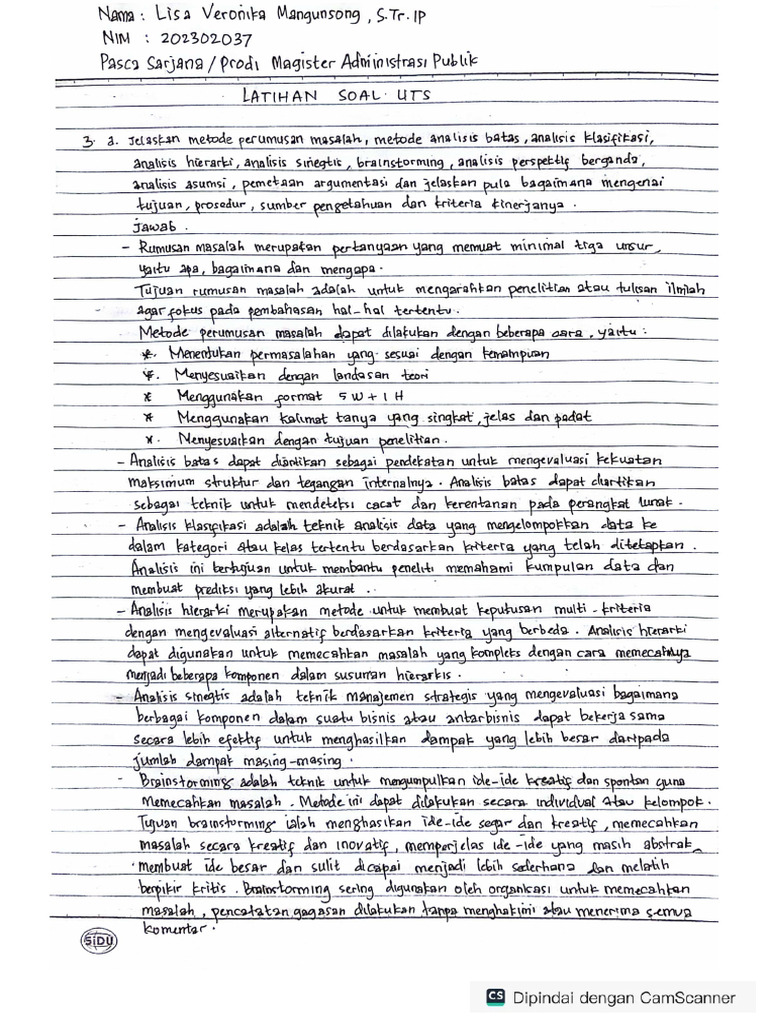 Nama : Lisa Veronika Mangunsong, S.Tr.IP
NIM : 202302037
Pasca Sarjana / Prodi Magister Administrasi Publik
LATIHAN SOAL UTS
3. a. Jelaskan metode perumusan masalah, metode analisis batas, analisis klasifikasi,
analisis hierarki, analisis sinegtis, brainstorming, analisis perspektif berganda,
analisis asumsi, pemetaan argumentasi dan jelaskan pula bagaimana mengenai
tujuan, prosedur, sumber pengetahuan dan kriteria kinerjanya.
Jawab.
- Rumusan masalah merupakan pertanyaan yang memuat minimal tiga unsur,
yaitu apa, bagaimana dan mengapa.
Tujuan rumusan masalah adalah untuk mengarahkan penelitian atau tulisan ilmiah
agar fokus pada pembahasan hal-hal tertentu.
Metode perumusan masalah dapat dilakukan dengan beberapa cara, yaitu :
*. Menentukan permasalahan yang sesuai dengan kemampuan
*. Menyesuaikan dengan landasan teori
* Menggunakan format 5 W + 1 H
* Menggunakan kalimat tanya yang singkat, jelas dan padat
*. Menyesuaikan dengan tujuan penelitian.
- Analisis batas dapat diartikan sebagai pendekatan untuk mengevaluasi kekuatan
maksimum struktur dan tegangan internalnya. Analisis batas dapat diartikan
sebagai teknik untuk mendeteksi cacat dan kerentanan pada perangkat lunak.
- Analisis klasifikasi adalah teknik analisis data yang mengelompokkan data ke
dalam kategori atau kelas tertentu berdasarkan kriteria yang telah ditetapkan.
Analisis ini bertujuan untuk membantu peneliti memahami kumpulan data dan
membuat prediksi yang lebih akurat.
- Analisis hierarki merupakan metode untuk membuat keputusan multi-kriteria
dengan mengevaluasi alternatif berdasarkan kriteria yang berbeda. Analisis hierarki
dapat digunakan untuk memecahkan masalah yang kompleks dengan cara memecahnya
menjadi beberapa komponen dalam susunan hierarkis.
- Analisis sinegtis adalah teknik manajemen strategis yang mengevaluasi bagaimana
berbagai komponen dalam suatu bisnis atau antarbisnis dapat bekerja sama
secara lebih efektif untuk menghasilkan dampak yang lebih besar daripada
jumlah dampak masing-masing.
- Brainstorming adalah teknik untuk mengumpulkan ide-ide kreatif dan spontan guna
memecahkan masalah. Metode ini dapat dilakukan secara individual atau kelompok.
Tujuan brainstorming ialah menghasikan ide-ide segar dan kreatif, memecahkan
masalah secara kreatif dan inovatif, memperjelas ide-ide yang masih abstrak,
membuat ide besar dan sulit dicapai menjadi lebih sederhana dan melatih
berpikir kritis. Brainstorming sering digunakan oleh organisasi untuk memecahkan
masalah, pencatatan gagasan dilakukan tanpa menghakimi atau menerima semua
komentar.
SIDU
CS Dipindai dengan CamScanner